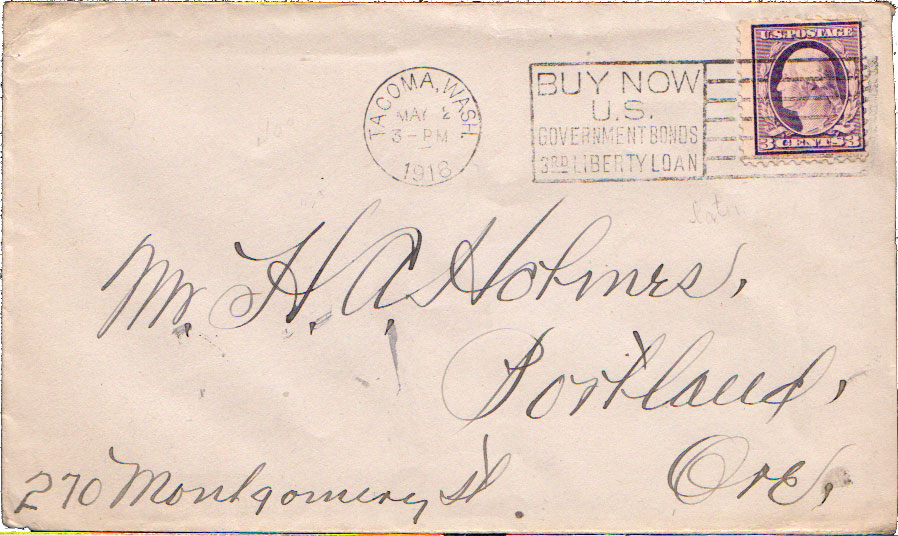 U.S. POSTAGE
3 CENTS 3
TACOMA, WASH.
MAY 2
3-PM
1918
BUY NOW
U.S.
GOVERNMENT BONDS
3RD LIBERTY LOAN
Mr. H. A. Holmes,
Portland,
Ore,
270 Montgomery St